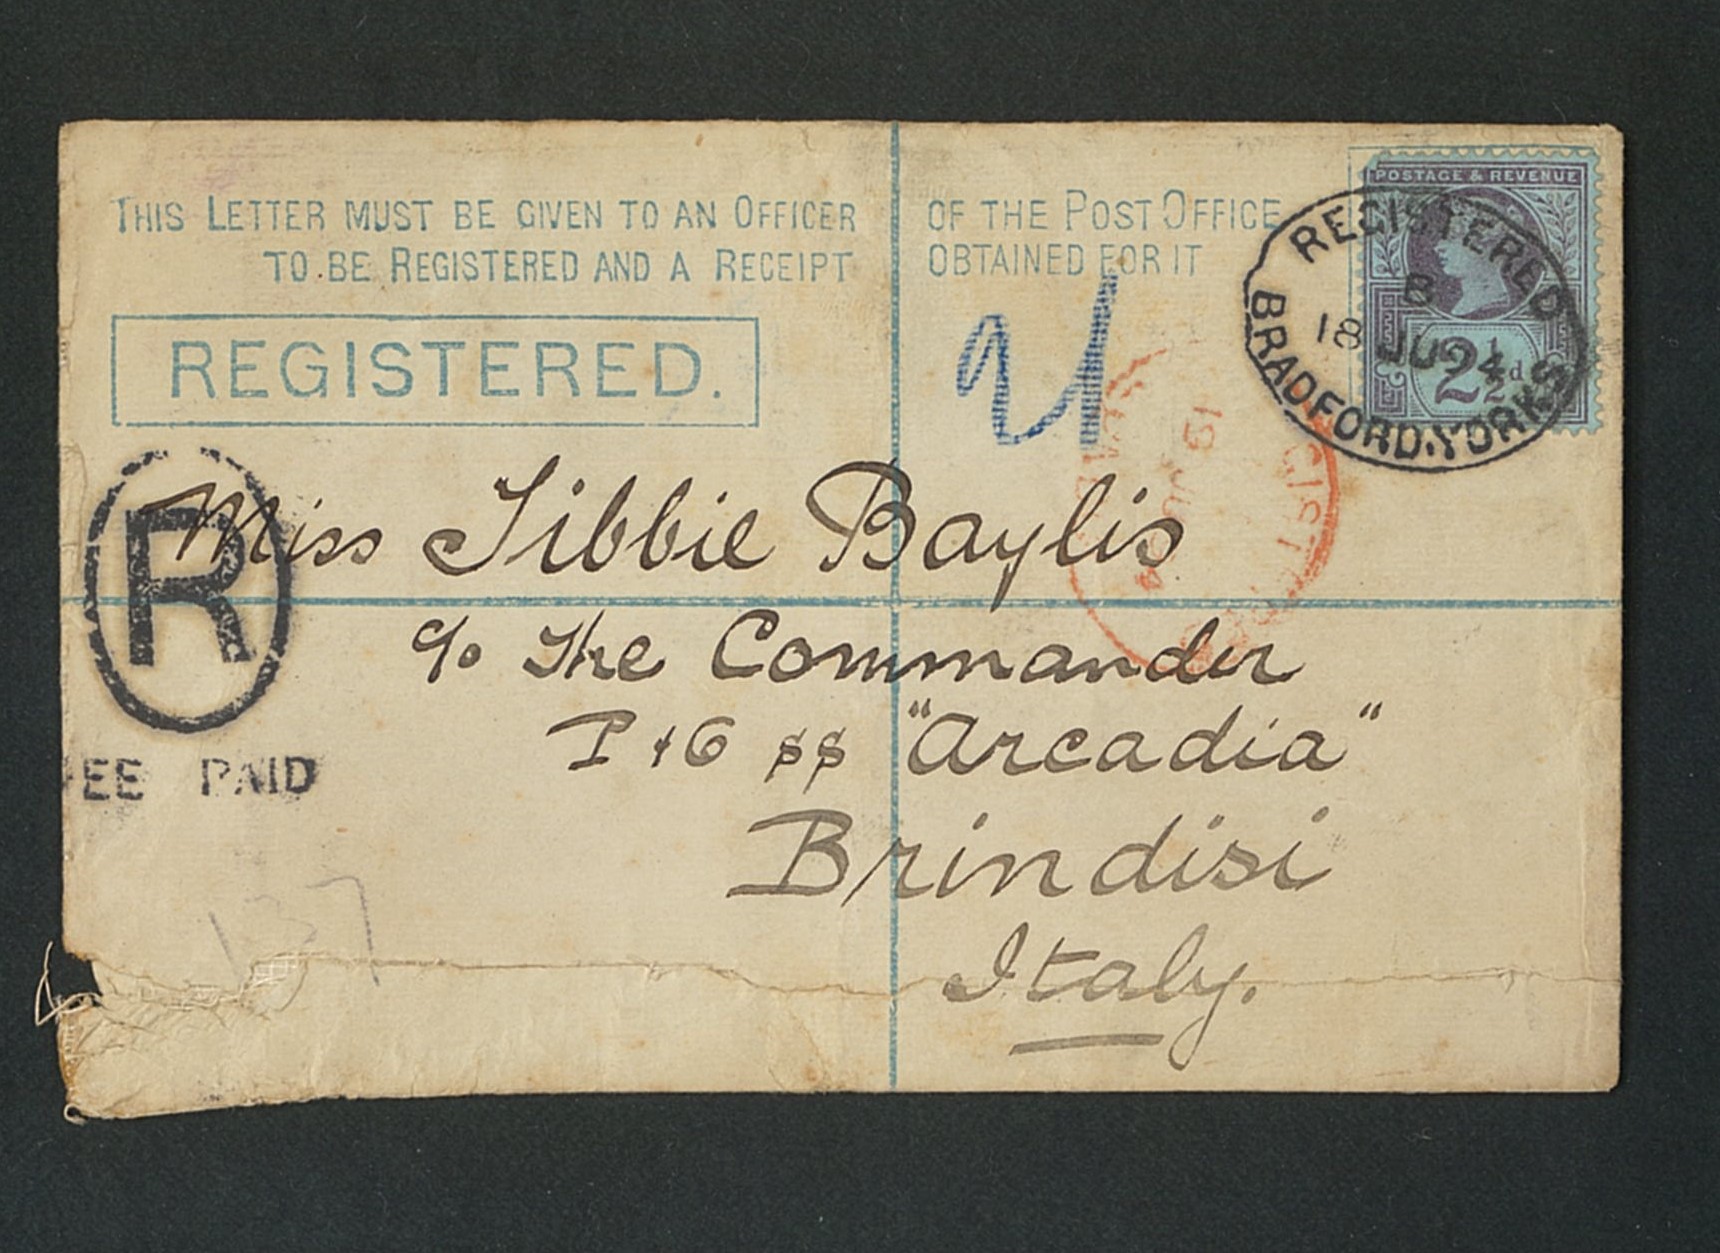 THIS LETTER MUST BE GIVEN TO AN OFFICER OF THE POST OFFICE
TO BE REGISTERED AND A RECEIPT OBTAINED FOR IT
REGISTERED.
POSTAGE & REVENUE
2½d
REGISTERED
B
18 JU 94
BRADFORD.YORKS
19
JU
R
EE PAID
Miss Tibbie Baylis
c/o The Commander
P & O SS "Arcadia"
Brindisi
Italy.
137